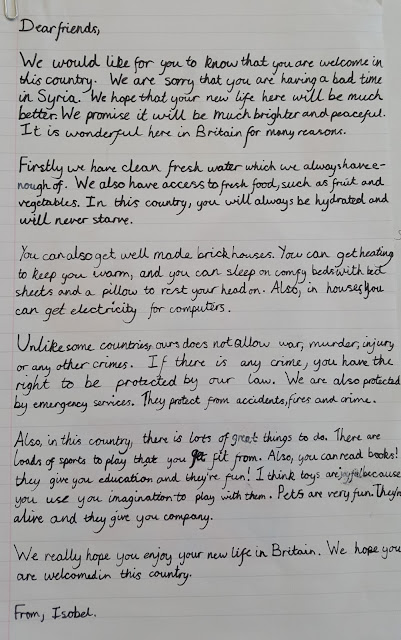 Dear friends,
We would like for you to know that you are welcome in
this country. We are sorry that you are having a bad time
in Syria. We hope that your new life here will be much
better. We promise it will be much brighter and peaceful.
It is wonderful here in Britain for many reasons.
Firstly we have clean fresh water which we always have e-
nough of. We also have access to fresh food, such as fruit and
vegetables. In this country, you will always be hydrated and
will never starve.
You can also get well made brick houses. You can get heating
to keep you warm, and you can sleep on comfy beds with
sheets and a pillow to rest your head on. Also, in houses you
can get electricity for computers.
Unlike some countries, ours does not allow war, murder, injury
or any other crimes. If there is any crime, you have the
right to be protected by our law. We are also protected
by emergency services. They protect from accidents, fires and crime.
Also, in this country, there is lots of great things to do. There are
loads of sports to play that you fit from. Also, you can read books!
they give you education and they're fun! I think toys are joyful because
you use you imagination to play with them. Pets are very fun. They're
alive and they give you company.
We really hope you enjoy your new life in Britain. We hope you
are welcomed in this country.
From, Isobel.